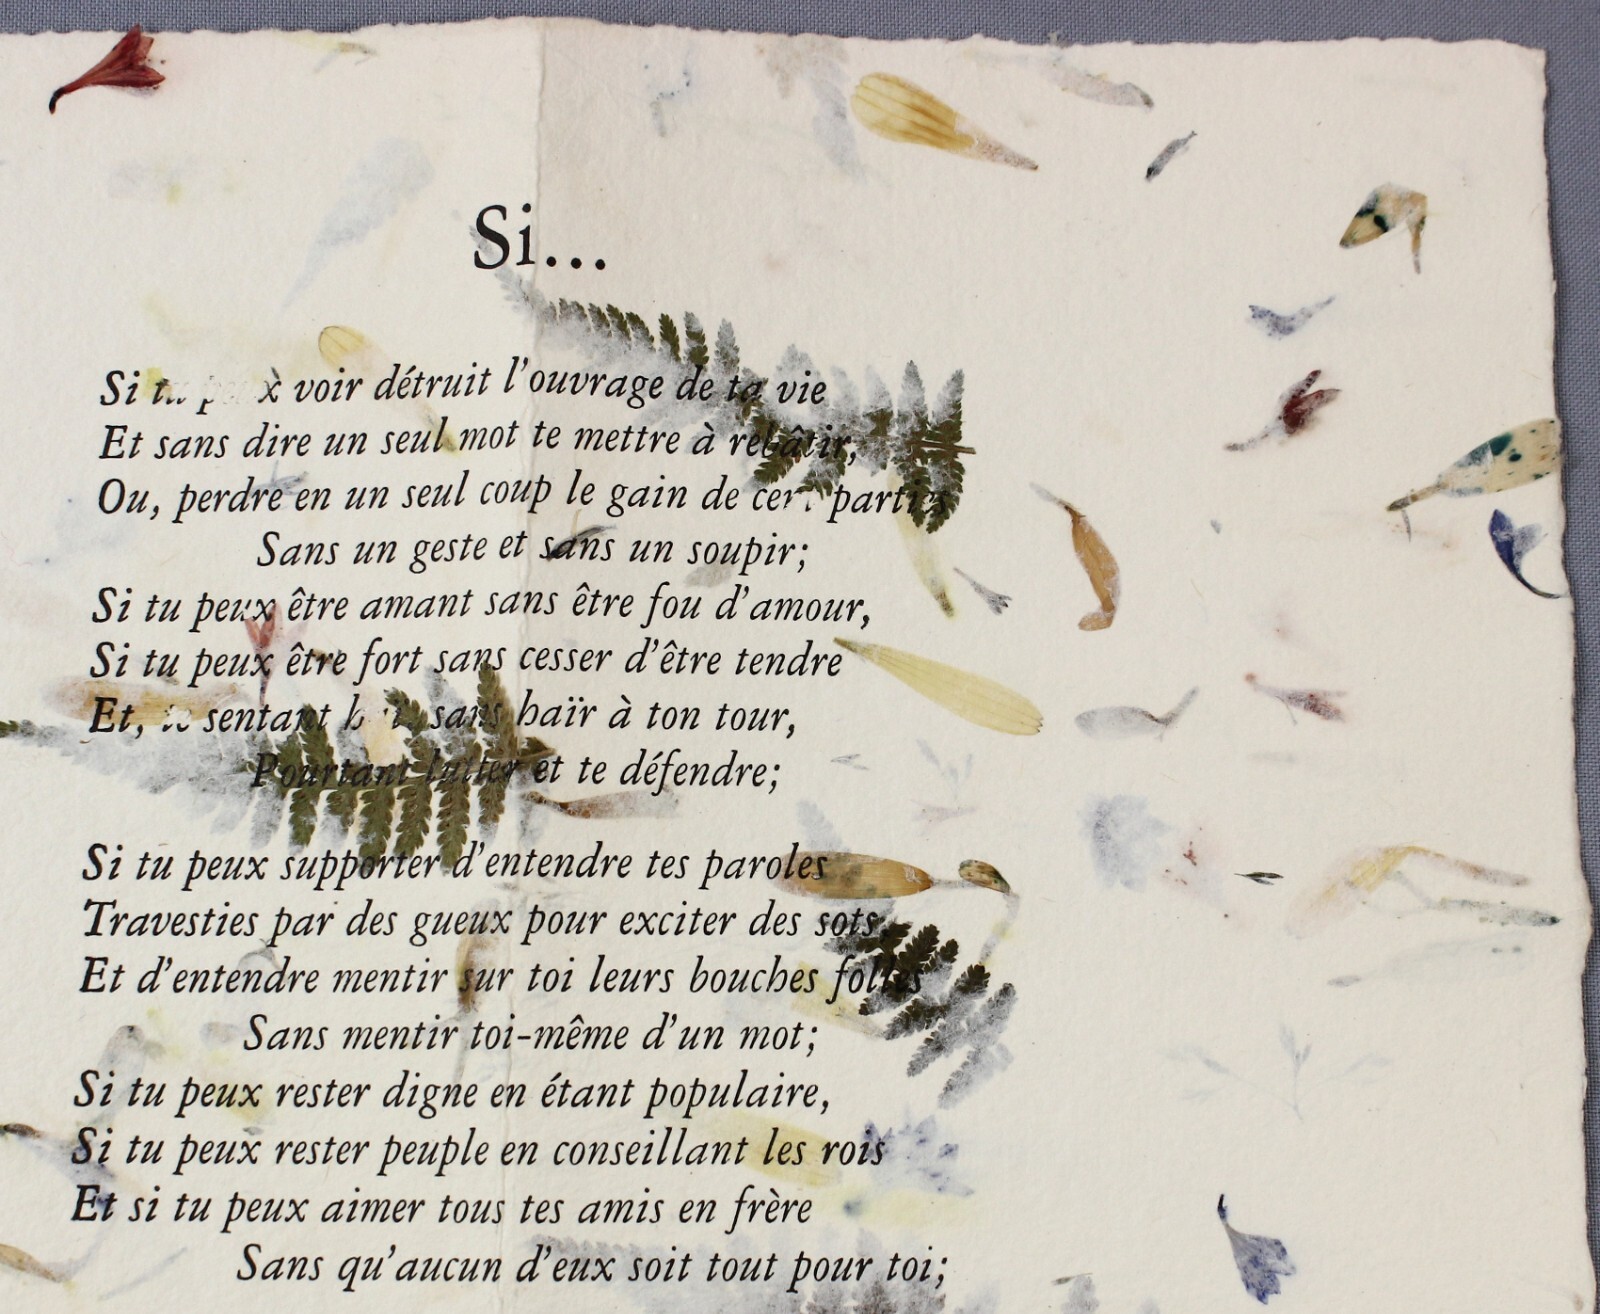 Si...
Si tu peux voir détruit l'ouvrage de ta vie
Et sans dire un seul mot te mettre à rebâtir,
Ou, perdre en un seul coup le gain de cent parties
Sans un geste et sans un soupir;
Si tu peux être amant sans être fou d'amour,
Si tu peux être fort sans cesser d'être tendre
Et, te sentant haï, sans haïr à ton tour,
Pourtant lutter et te défendre;
Si tu peux supporter d'entendre tes paroles
Travesties par des gueux pour exciter des sots,
Et d'entendre mentir sur toi leurs bouches folles
Sans mentir toi-même d'un mot;
Si tu peux rester digne en étant populaire,
Si tu peux rester peuple en conseillant les rois
Et si tu peux aimer tous tes amis en frère
Sans qu'aucun d'eux soit tout pour toi;